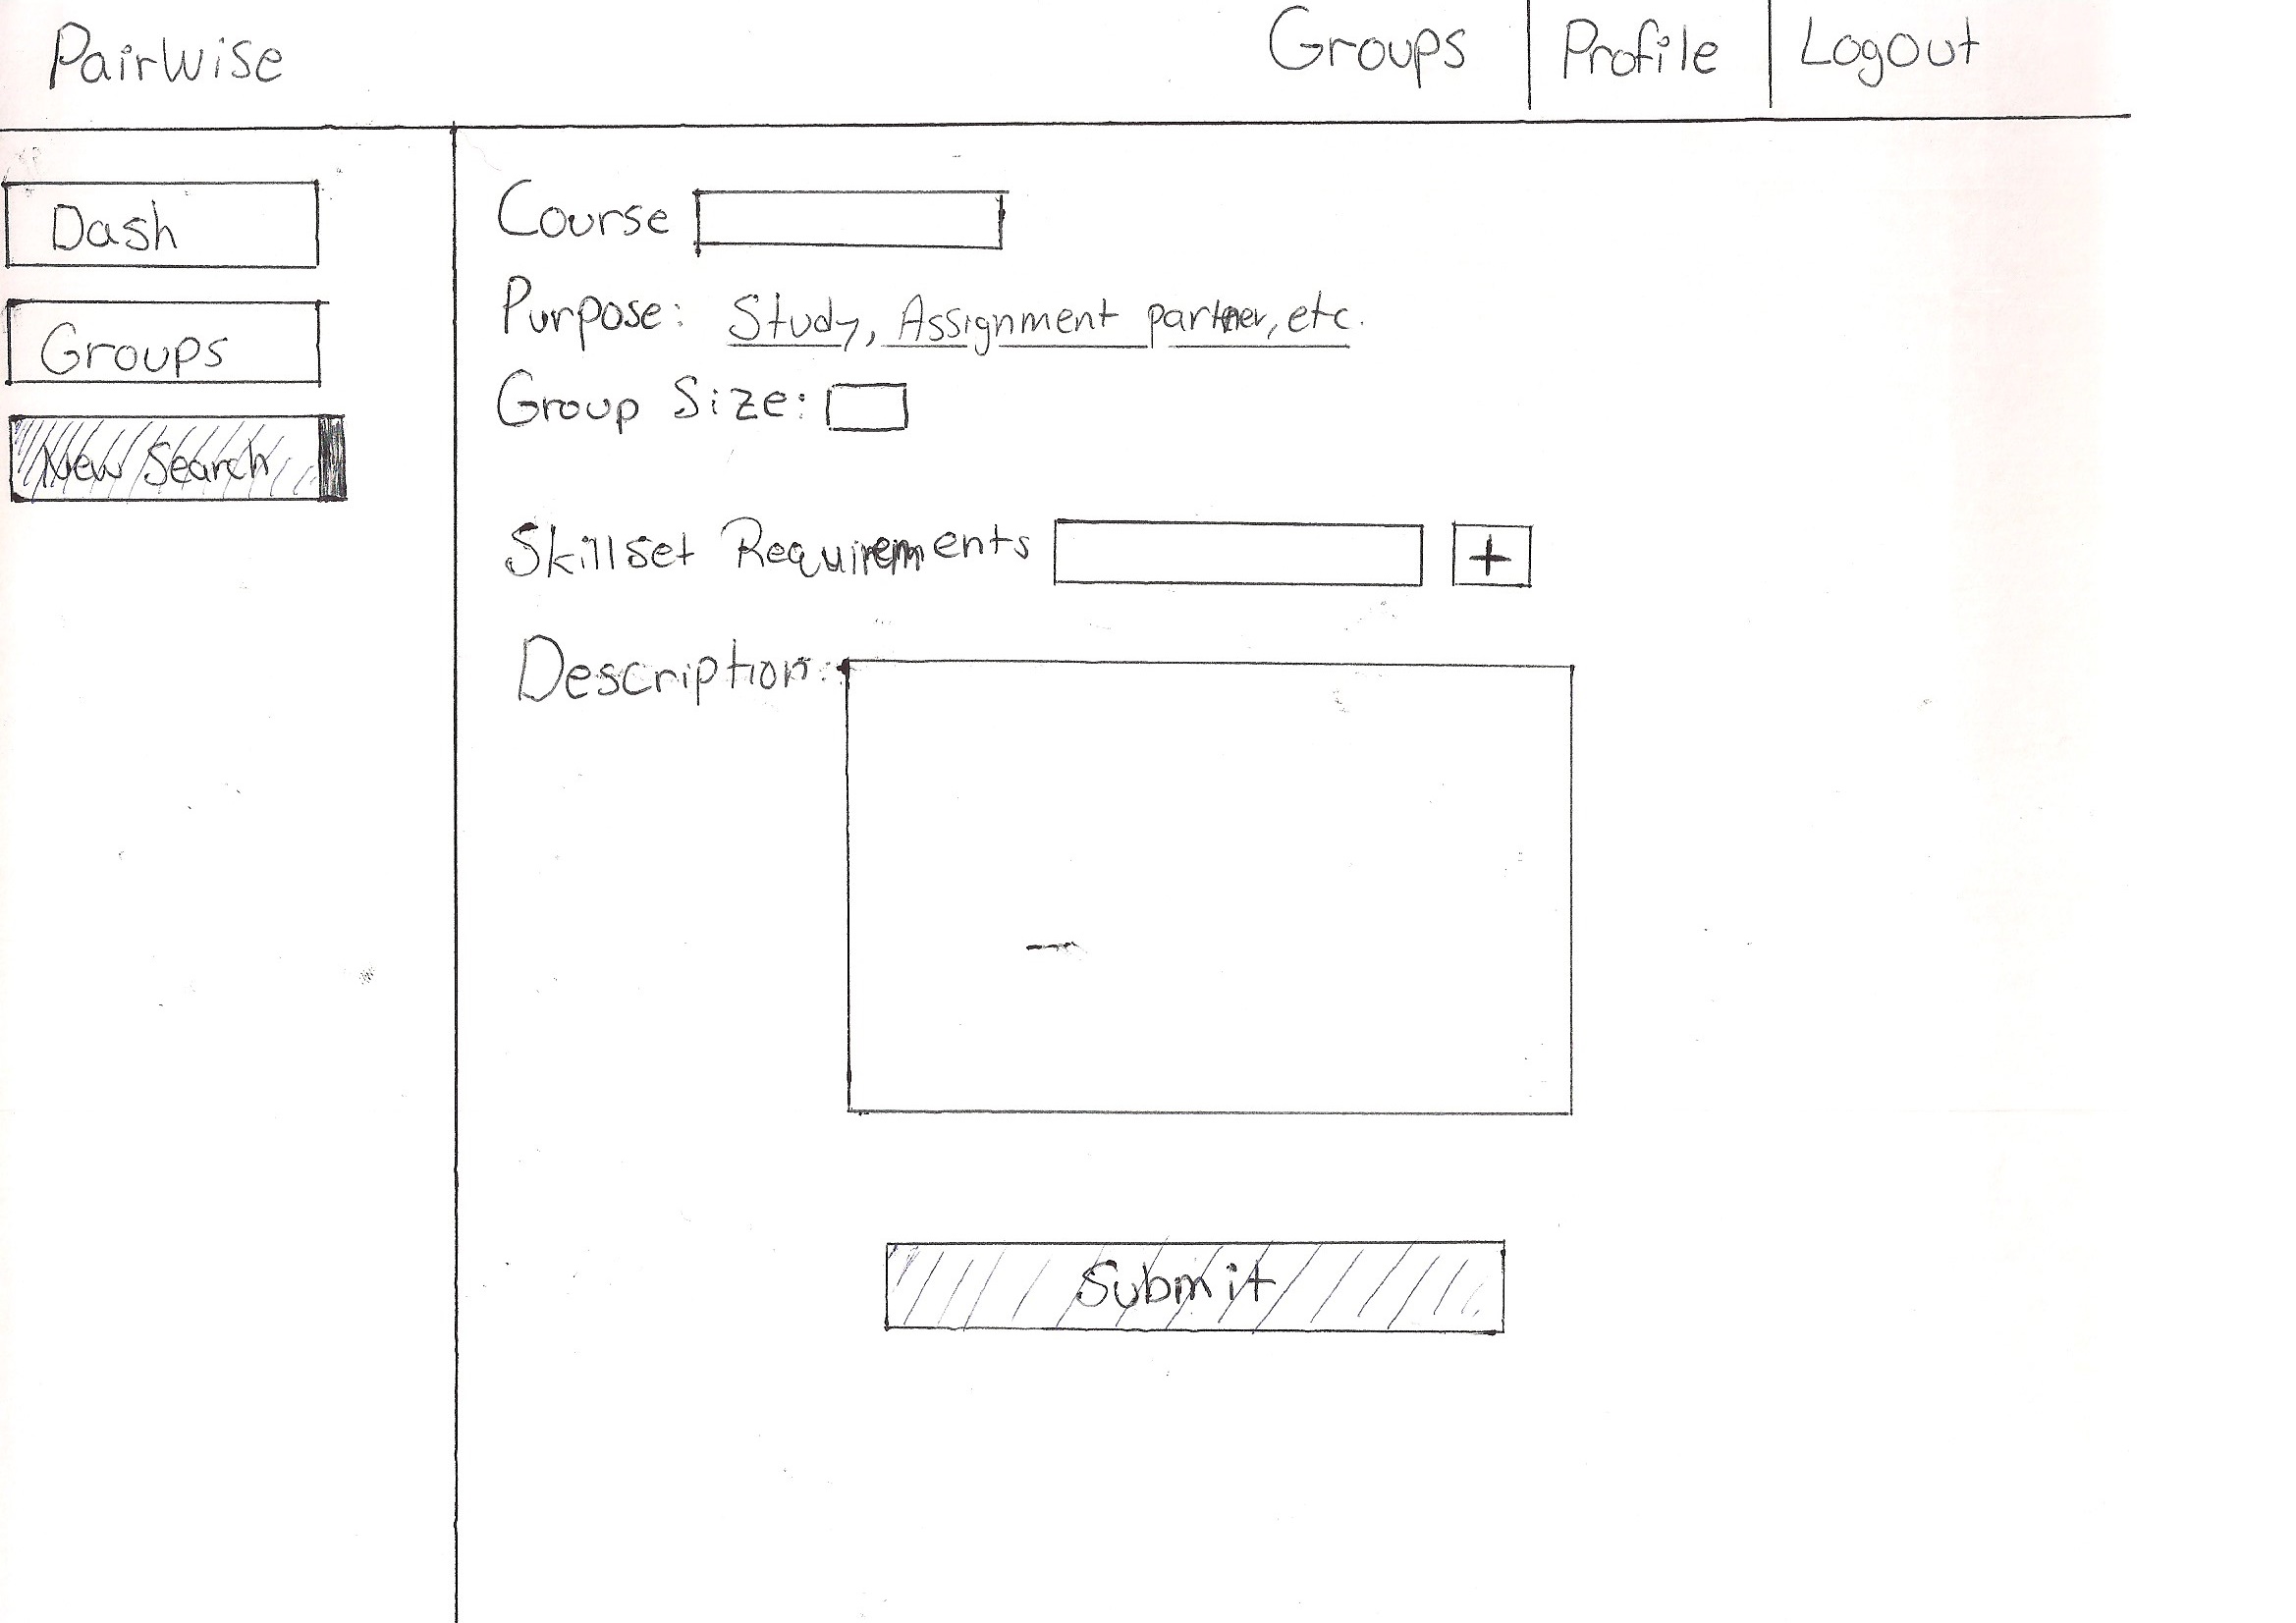 Pairwise
Groups
Profile
Logout
Dash
Groups
New Search
Course
Purpose: Study, Assignment partner, etc.
Group Size:
Skillset Requirements
+
Description:
Submit